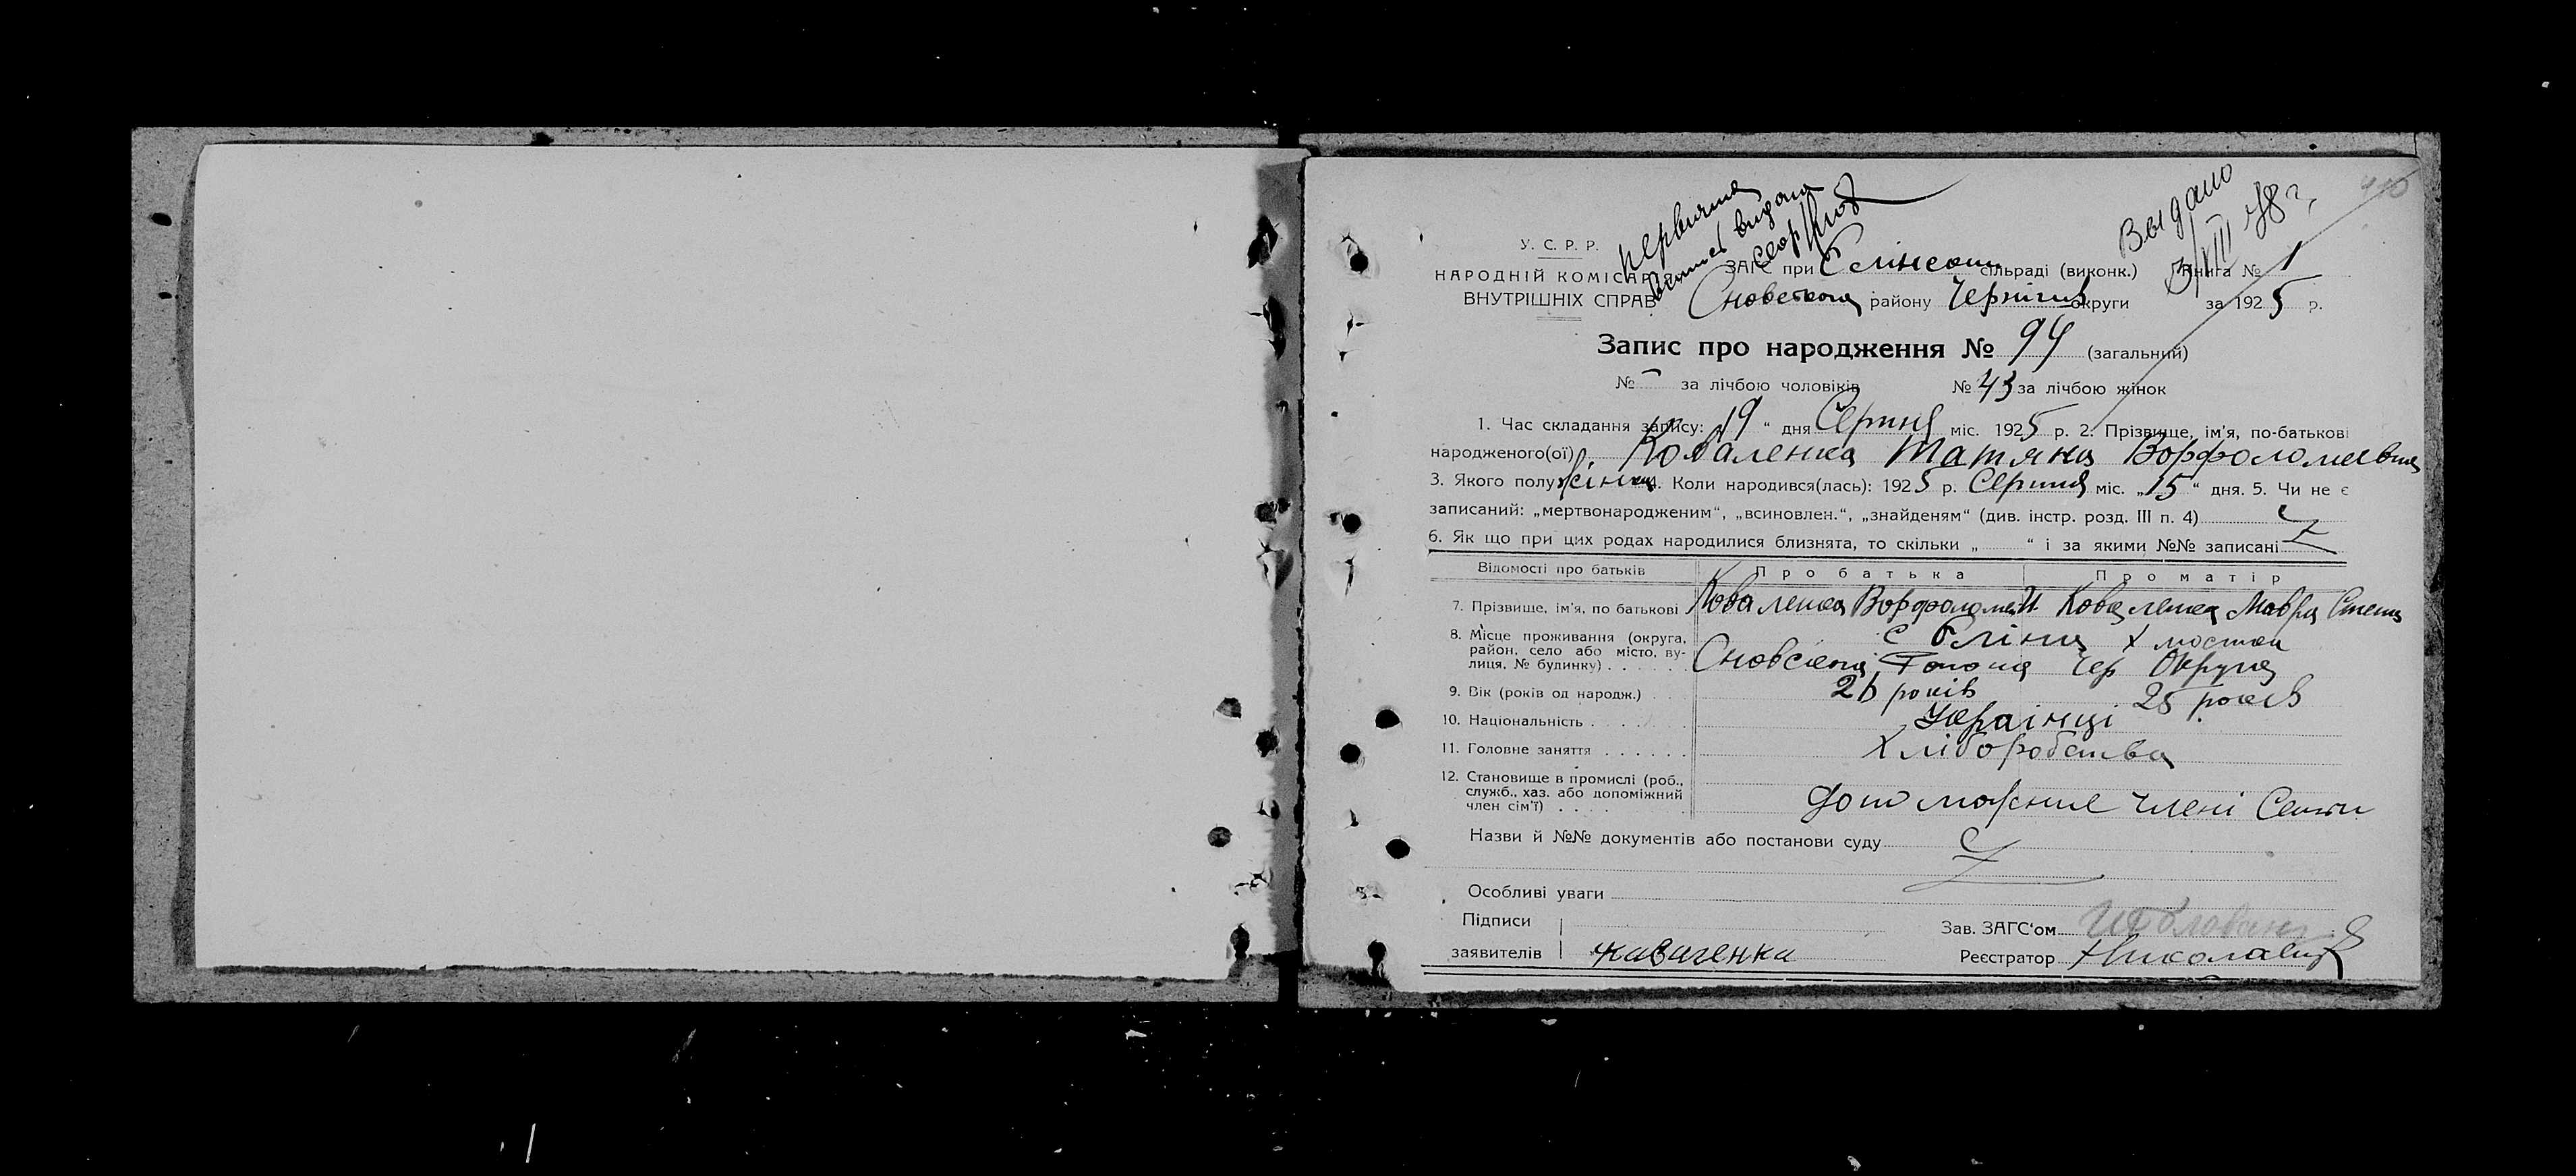 Выдано
3/VIII 48 г.
У. С. Р. Р.
НАРОДНІЙ КОМІСАРІЯТ
ВНУТРІШНІХ СПРАВ
ЗАГС при сільраді (виконк.) Книга № 1
Сновського району Чернігів округи за 1925 р.
Запис про народження № 94 (загальний)
№ - за лічбою чоловіків № 43 за лічбою жінок
1. Час складання запису: „19“ дня Серпня міс. 1925 р. 2. Прізвище, ім'я, по-батькові
народженого(ої) Коваленка Татяна Ворфоломеевна
3. Якого полу 4. Коли народився(лась): 1925 р. Серпня міс. „15“ дня. 5. Чи не є
записаний: „мертвонародженим“, „всиновлен.“, „знайденям“ (див. інстр. розд. III п. 4)
6. Як що при цих родах народилися близнята, то скільки „ “ і за якими №№ записані
Відомості про батьків Про батька Про матір
7. Прізвище, ім'я, по батькові Коваленка Ворфоломей Коваленка Мавра Степ
8. Місце проживання (округа, район, село або місто, вулиця, № будинку) с
Сновського Чер Округа
9. Вік (років од народж.) 26 років 25 років
10. Національність Українці
11. Головне заняття Хліборобства
12. Становище в промислі (роб.,
служб., хаз. або допоміжний
член сім'ї) допоможние члені Семьи
Назви й №№ документів або постанови суду
Особливі уваги
Підписи Зав. ЗАГС'ом
заявителів Реєстратор